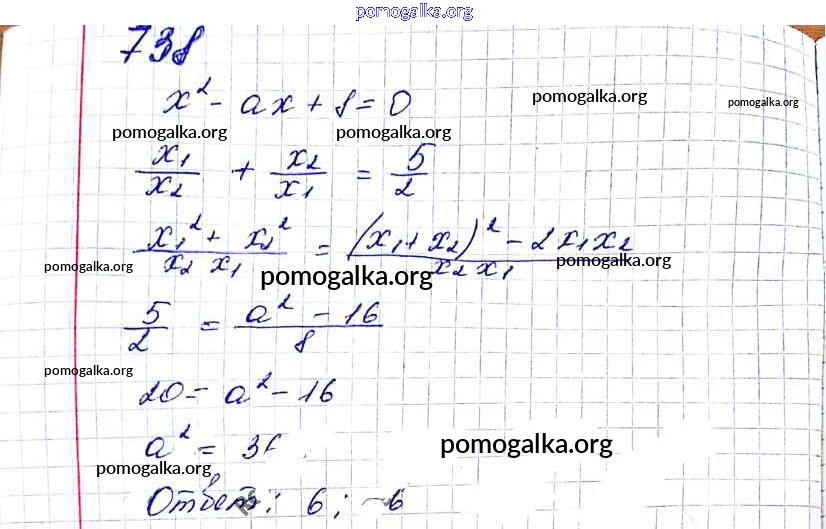 pomogalka.org
738
x² - ax + 8 = 0
pomogalka.org pomogalka.org
pomogalka.org pomogalka.org
x₁/x₂ + x₂/x₁ = 5/2
(x₁² + x₂²)/(x₂ x₁) = ((x₁ + x₂)² - 2x₁x₂)/(x₂ x₁)
pomogalka.org pomogalka.org pomogalka.org
5/2 = (a² - 16)/8
pomogalka.org
20 = a² - 16
a² = 36
pomogalka.org pomogalka.org
Ответ: 6; -6